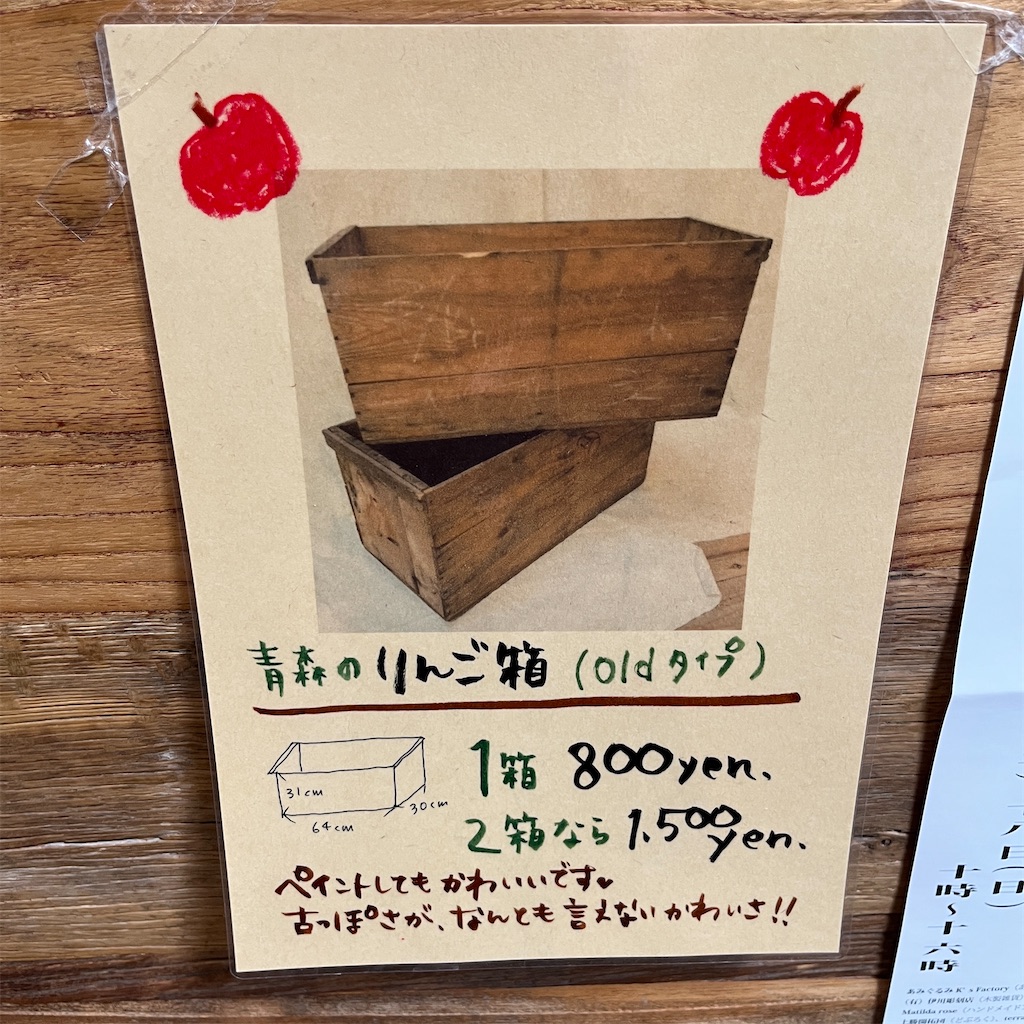 青森のりんご箱(oldタイプ)
31cm
30cm
64cm
1箱 800yen.
2箱なら 1.500yen.
ペイントしてもかわいいです♥
古っぽさが、なんとも言えないかわいさ!!
十時~十六時
あみぐるみK's Factory
(有)伊川彫刻店(木製雑貨)
Matilda rose(ハンドメイド